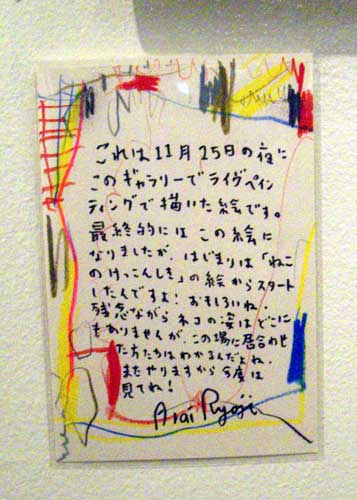 これは11月25日の夜に
このギャラリーでライヴペイン
ティングで描いた絵です。
最終的にはこの絵に
なりましたが、はじまりは「ねこ
のけっこんしき」の絵からスタート
したんですよ!おもしろいね.
残念ながらネコの姿はどこに
もありませんが、この場に居合わせ
た方たちはわかるんだよね.
またやりますから今度は
見てね!
Arai Ryoji